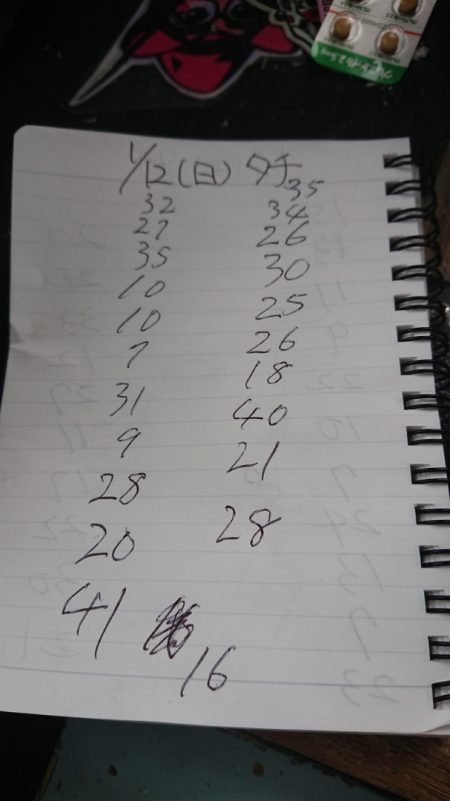 1/12(日) タチ
35
32 34
27 26
35 30
10 25
10 26
7 18
31 40
9 21
28 28
20
41
16